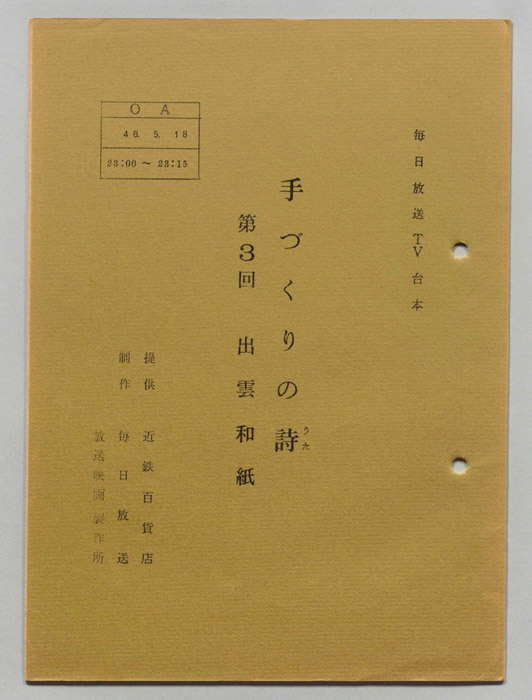 毎日放送TV台本
手づくりの詩
うた
第3回 出雲和紙
OA
48. 5. 18
23:00 ～ 23:15
提供 近鉄百貨店
制作 毎日放送
放送映画製作所